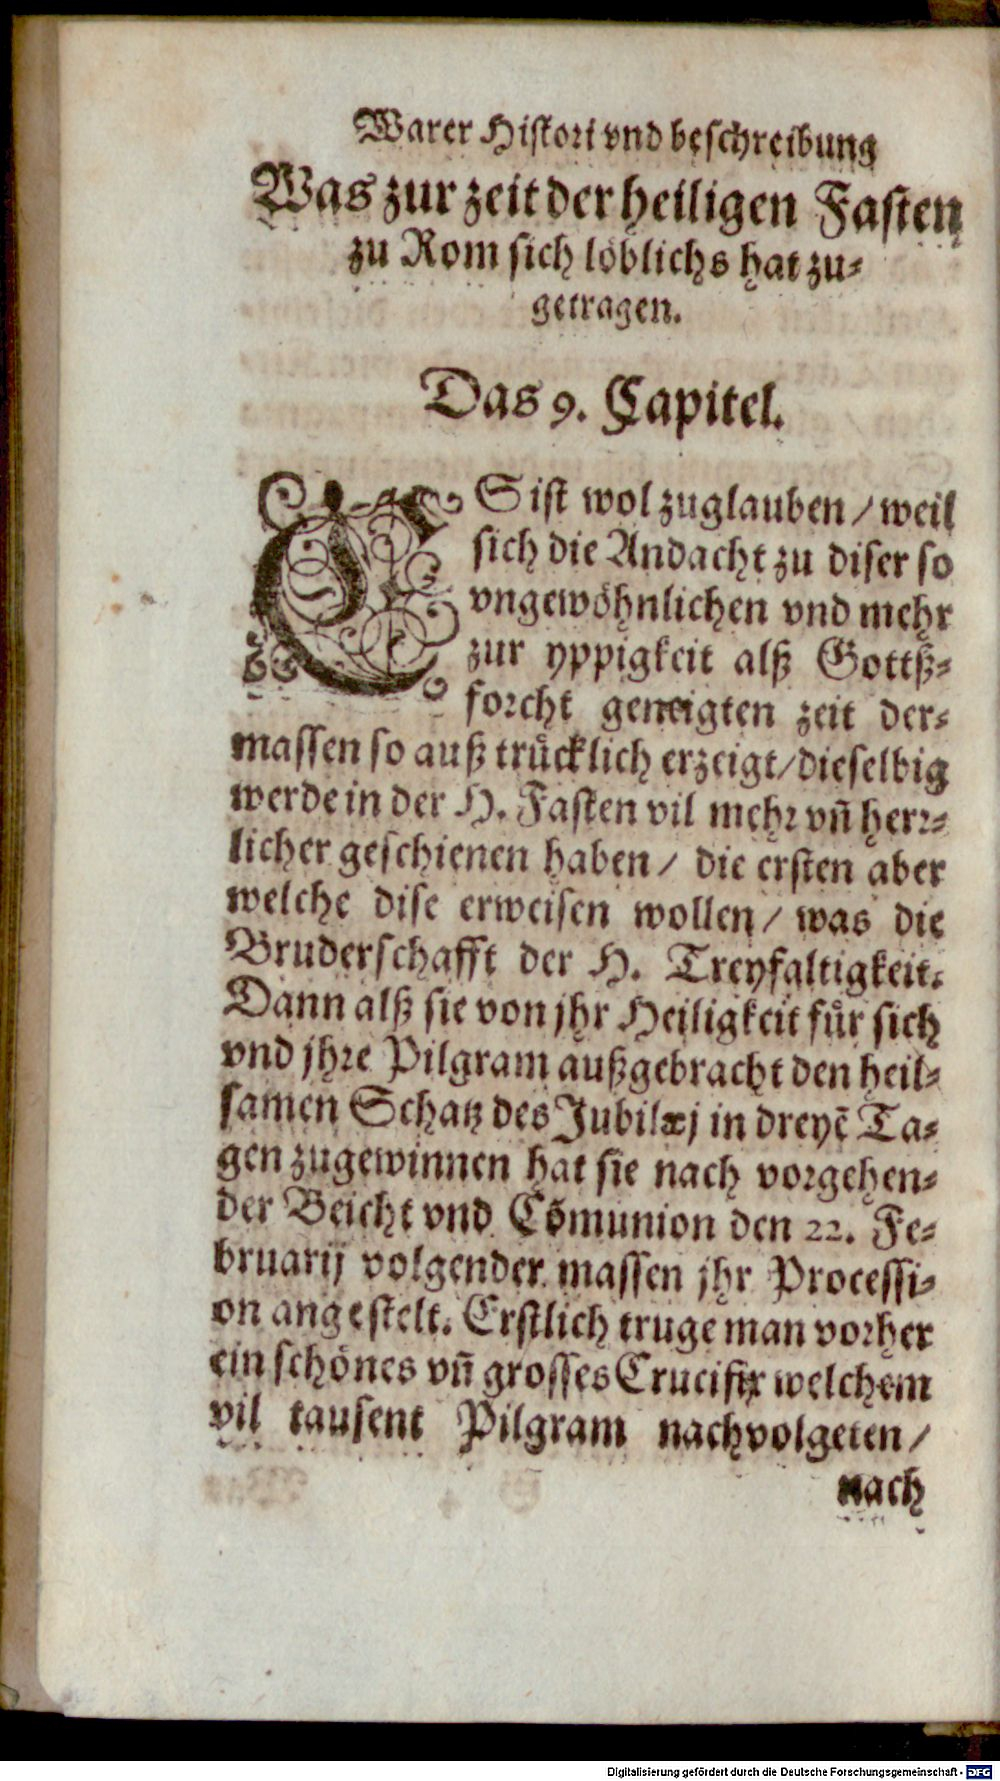 Warer Histori vnd beschreibung
Was zur zeit der heiligen Fasten
zu Rom sich löblichs hat zu⸗
getragen.
Das 9. Capitel.
ES ist wol zuglauben / weil
sich die Andacht zu diser so
vngewöhnlichen vnd mehr
zur yppigkeit alß Gottß⸗
forcht geneigten zeit der⸗
massen so auß trücklich erzeigt / dieselbig
werde in der H. Fasten vil mehr vñ herr⸗
licher geschienen haben / die ersten aber
welche dise erweisen wollen / was die
Bruderschafft der H. Treyfaltigkeit.
Dann alß sie von jhr Heiligkeit für sich
vnd jhre Pilgram außgebracht den heil⸗
samen Schatz des Jubilæj in dreyẽ Ta⸗
gen zugewinnen hat sie nach vorgehen⸗
der Beicht vnd Cõmunion den 22. Fe⸗
bruarij volgender massen jhr Processi⸗
on angestelt. Erstlich truge man vorher
ein schönes vñ grosses Crucifix welchem
vil tausent Pilgram nachvolgeten /
nach
Digitalisierung gefördert durch die Deutsche Forschungsgemeinschaft - DFG